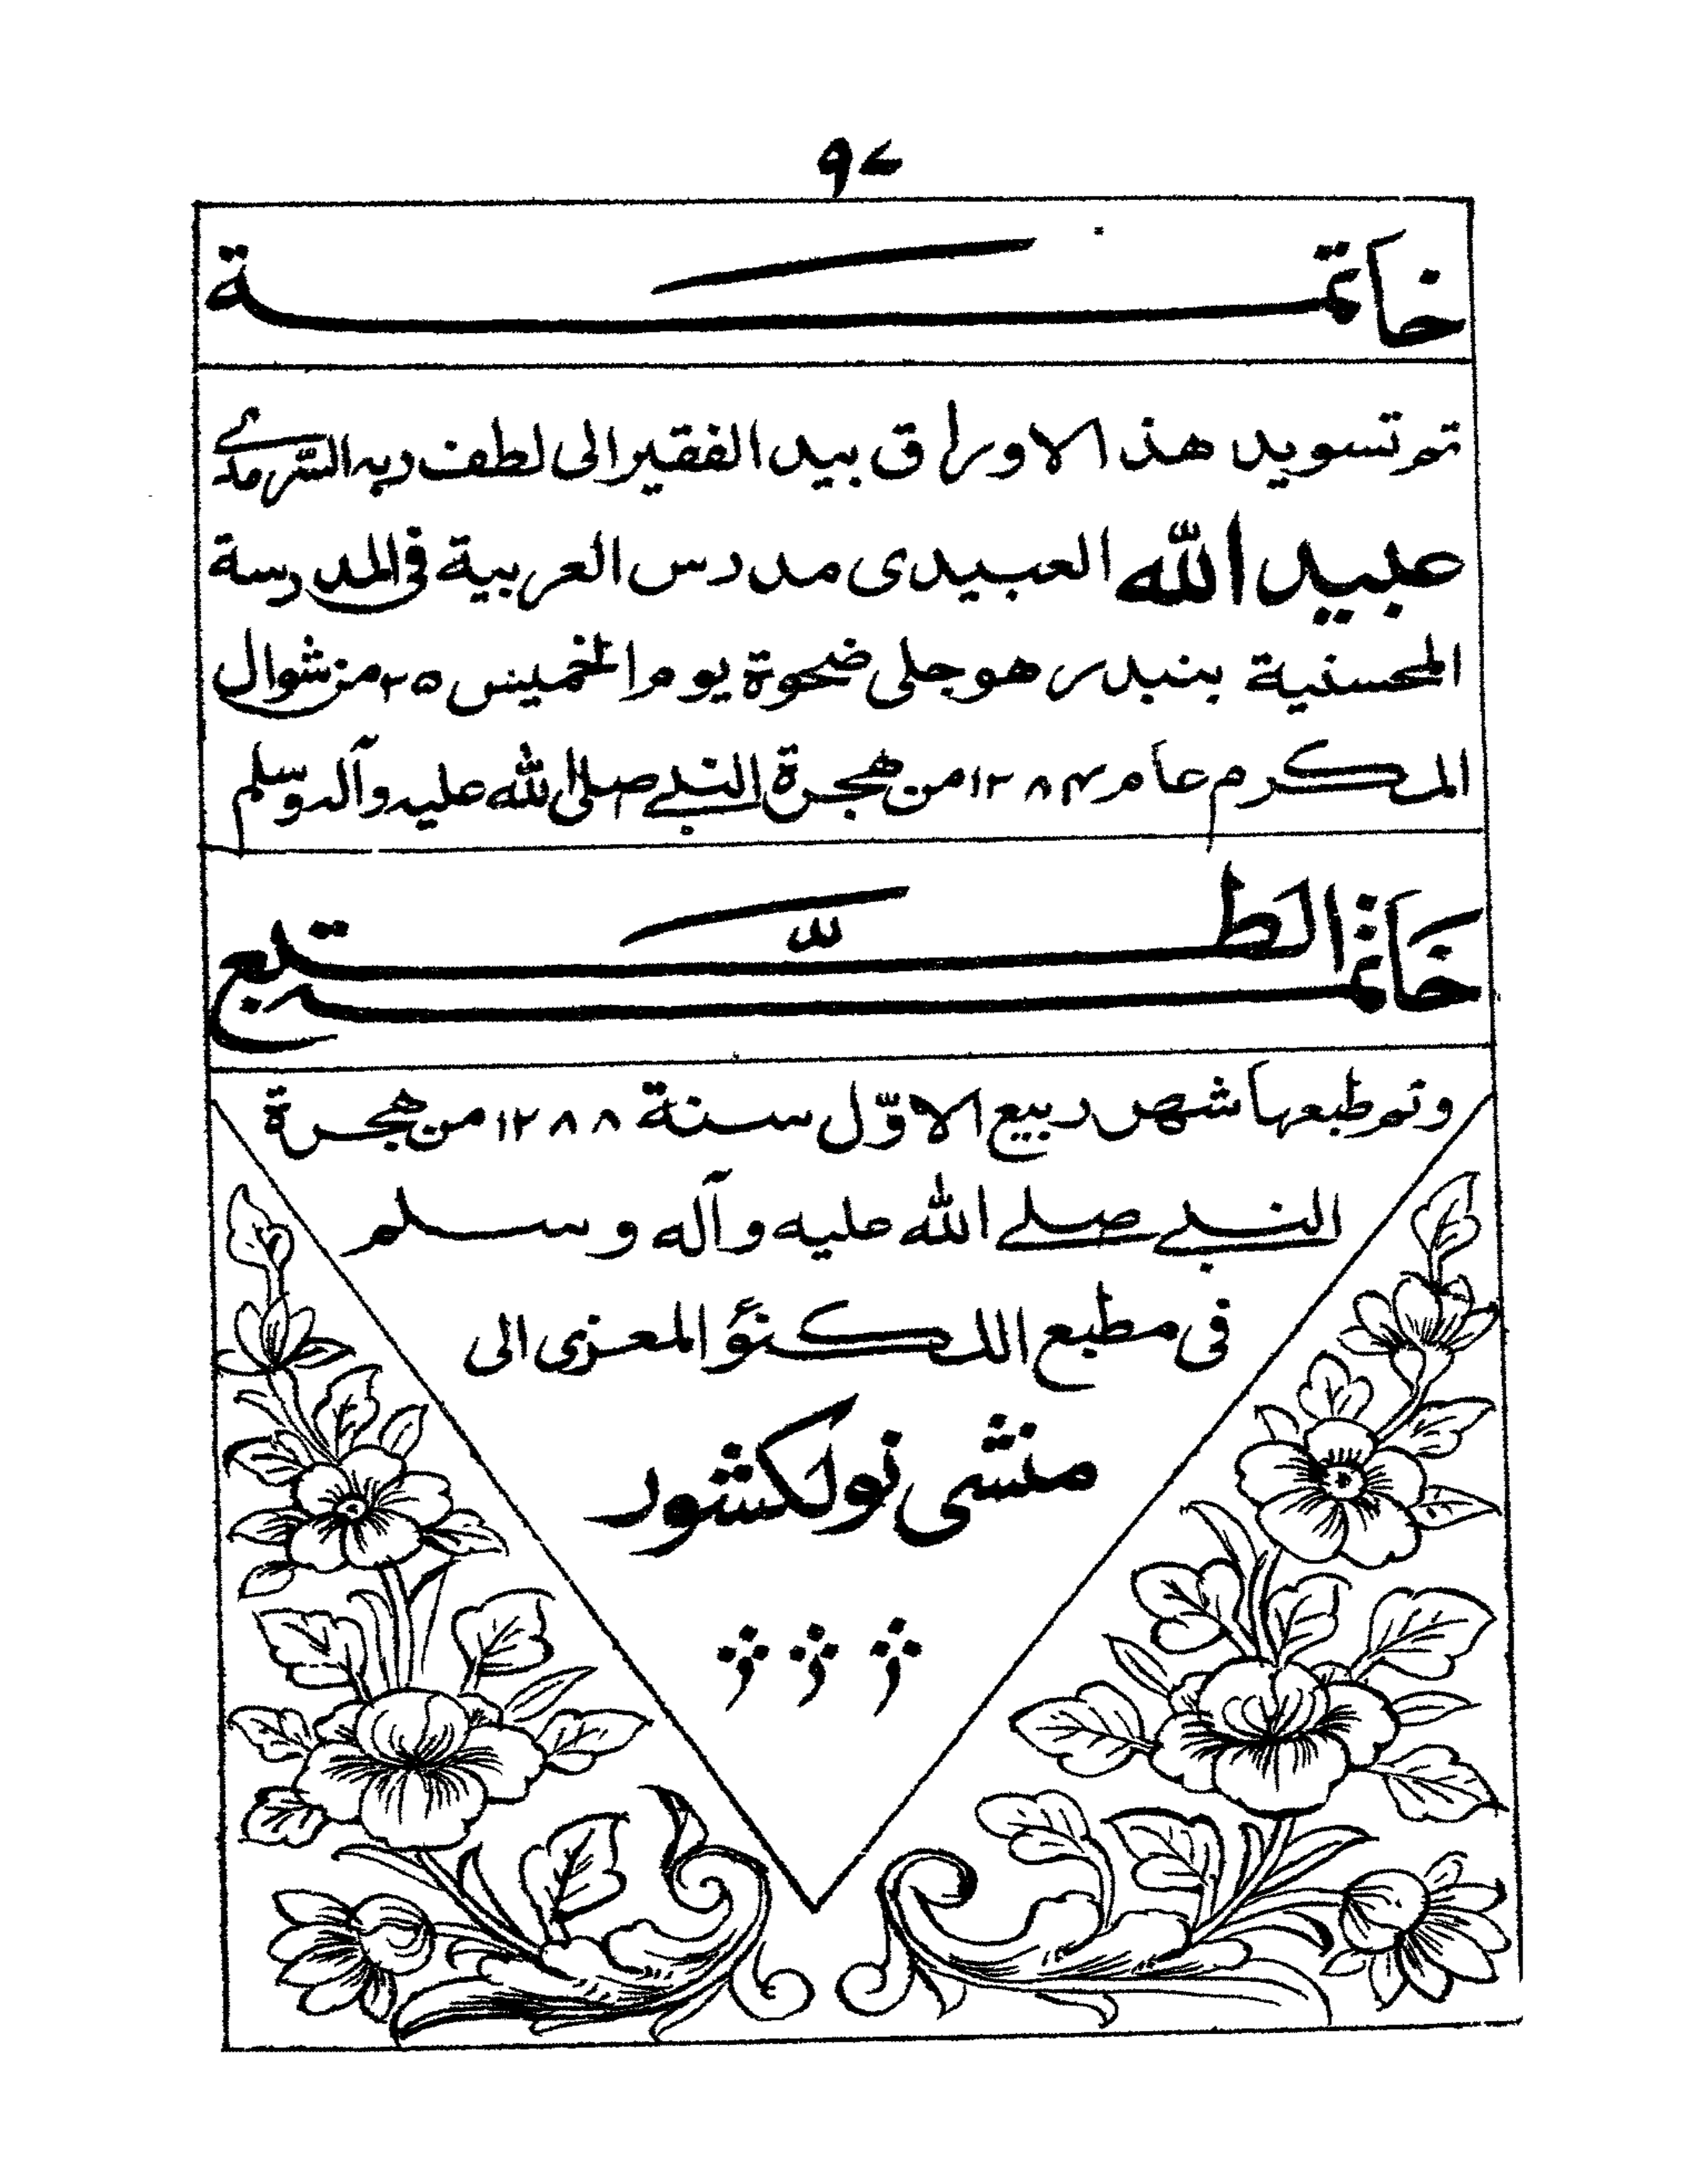 ۹۷
خاتمة
تم تسويد هذ الاوراق بيد الفقير الى لطف ربه السّرمدي
عبيد الله العبيدى مدرس العربية فى المدرسة
المحسنية ببندر هوجلى ضحوة يوم الخميس ۲۵ من شوال
المكرم عام ۱۲۸۴ من هجرة النبي صلى الله عليه وآله وسلم
خاتمة الطبع
وتم طبعها شهر ربيع الاوّل سنة ۱۲۸۸ من هجرة
النبي صلے الله عليه وآله وسلم
فى مطبع اللكنؤ المعزى الى
منشى نولكشور